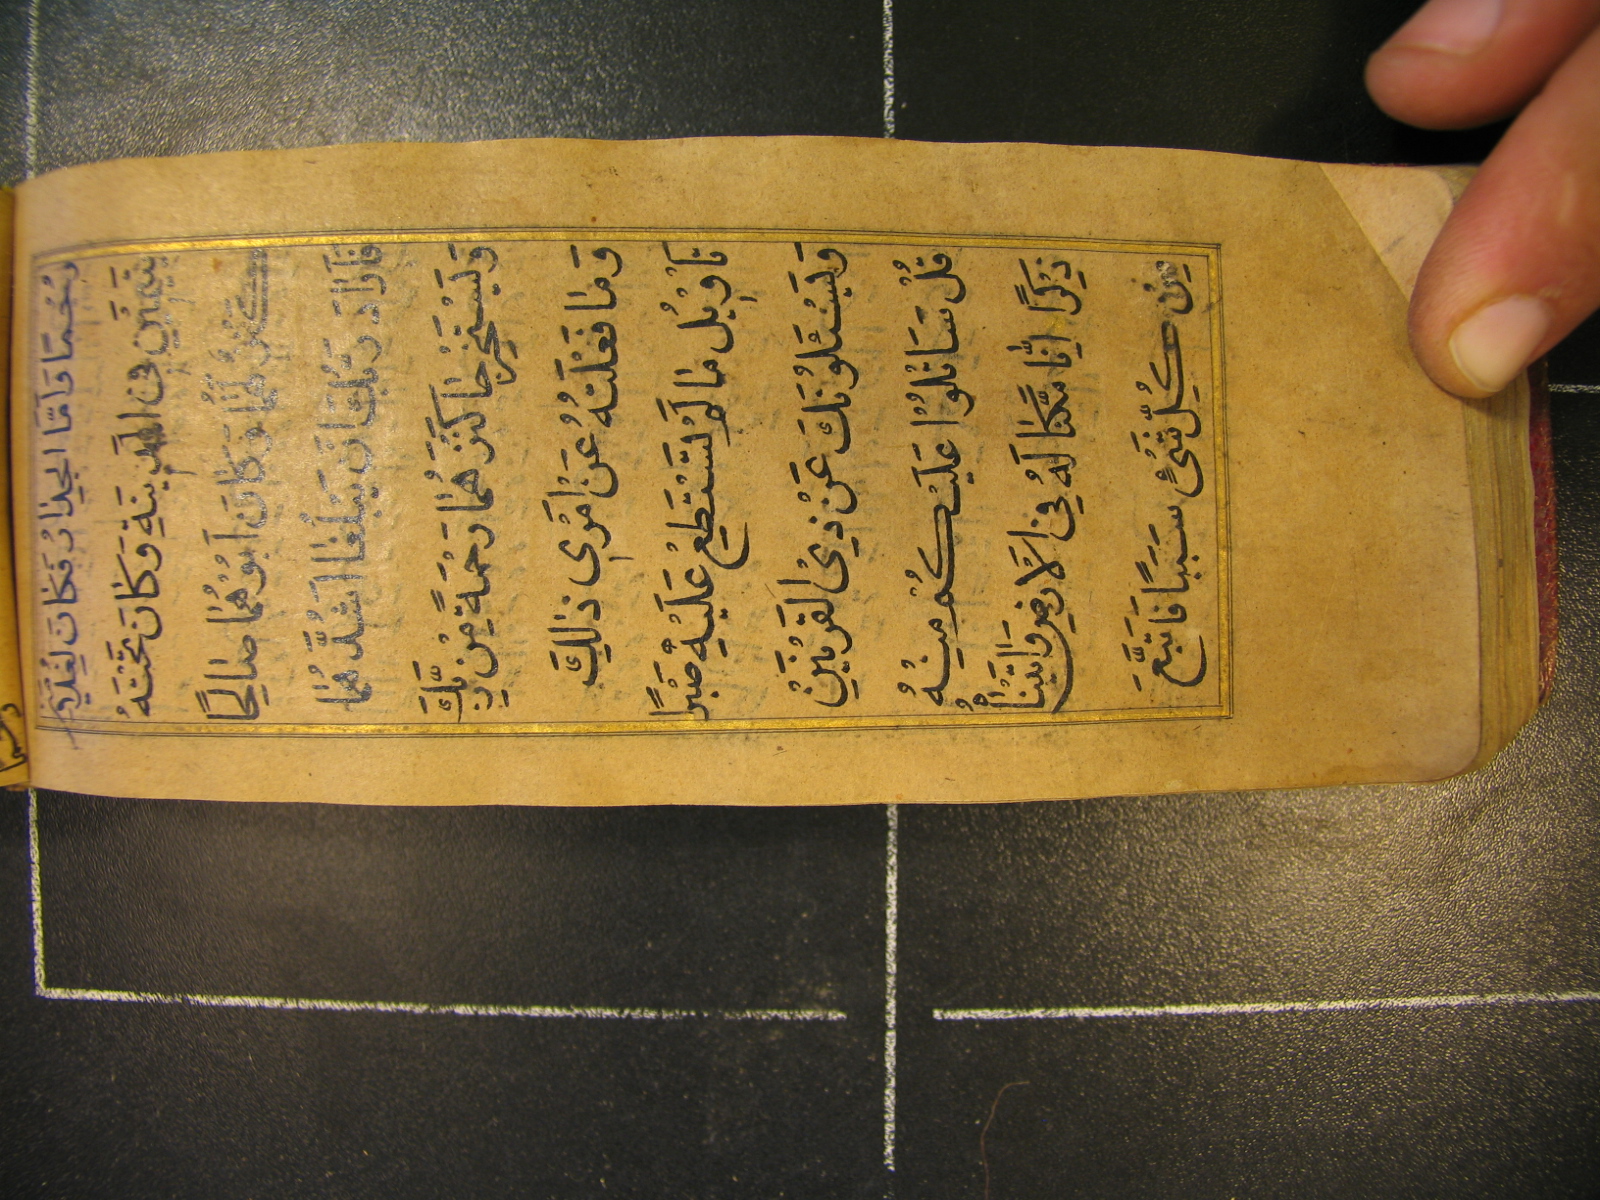 رُحْمًا وَاَمَّا الْجِدَارُ فَكَانَ لِغُلٰمَيْنِ
يَتِيْمَيْنِ فِى الْمَدِيْنَةِ وَكَانَ تَحْتَهُ
كَنْزٌ لَّهُمَا وَكَانَ اَبُوْهُمَا صَالِحًا
فَاَرَادَ رَبُّكَ اَنْ يَبْلُغَا اَشُدَّهُمَا
وَيَسْتَخْرِجَا كَنْزَهُمَا رَحْمَةً مِنْ رَبِّكَ
وَمَا فَعَلْتُهُ عَنْ اَمْرِى ذٰلِكَ
تَاْوِيْلُ مَا لَمْ تَسْتَطِعْ عَلَيْهِ صَبْرًا
وَيَسْئَلُوْنَكَ عَنْ ذِى الْقَرْنَيْنِ
قُلْ سَاَتْلُوْا عَلَيْكُمْ مِنْهُ
ذِكْرًا اِنَّا مَكَّنَّا لَهُ فِى الْاَرْضِ وَاٰتَيْنٰهُ
مِنْ كُلِّ شَىْءٍ سَبَبًا فَاَتْبَعَ